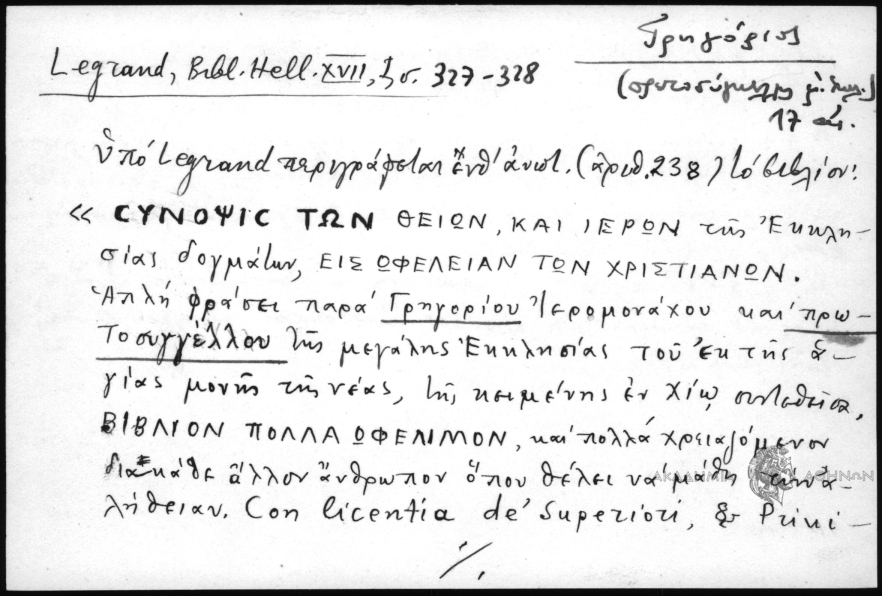 Γρηγόριος
Legrand, Bibl. Hell. XVII, ξ σ. 327-328
(πρωτοσύγκελλος μ. Εκκλ.)
17 αἰ.
ὑπό Legrand περιγράφεται ἔνθ' ἀνωτ. (ἀριθ. 238) τό βιβλίον:
« CΥΝΟΨΙC ΤΩΝ ΘΕΙΩΝ, ΚΑΙ ΙΕΡΩΝ τῆς Ἐκκλη-
σίας δογμάτων, ΕΙΣ ΩΦΕΛΕΙΑΝ ΤΩΝ ΧΡΙΣΤΙΑΝΩΝ.
Ἁπλῇ φράσει παρά Γρηγορίου Ἱερομονάχου καί πρω-
τοσυγγέλλου τῆς μεγάλης Ἐκκλησίας τοῦ ἐκ τῆς ἁ-
γίας μονῆς τῆς νέας, τῆς κειμένης ἐν Χίῳ συντεθεῖσα,
ΒΙΒΛΙΟΝ ΠΟΛΛΑ ΩΦΕΛΙΜΟΝ, καί πολλά χρειαζόμενον
διά κάθε ἄλλον ἄνθρωπον ὅπου θέλει νά μάθῃ τήν ἀ-
λήθειαν. Con licentia de' Superiori, & Privi-
./.
ΑΚΑΔΗΜΙΑ ΑΘΗΝΩΝ